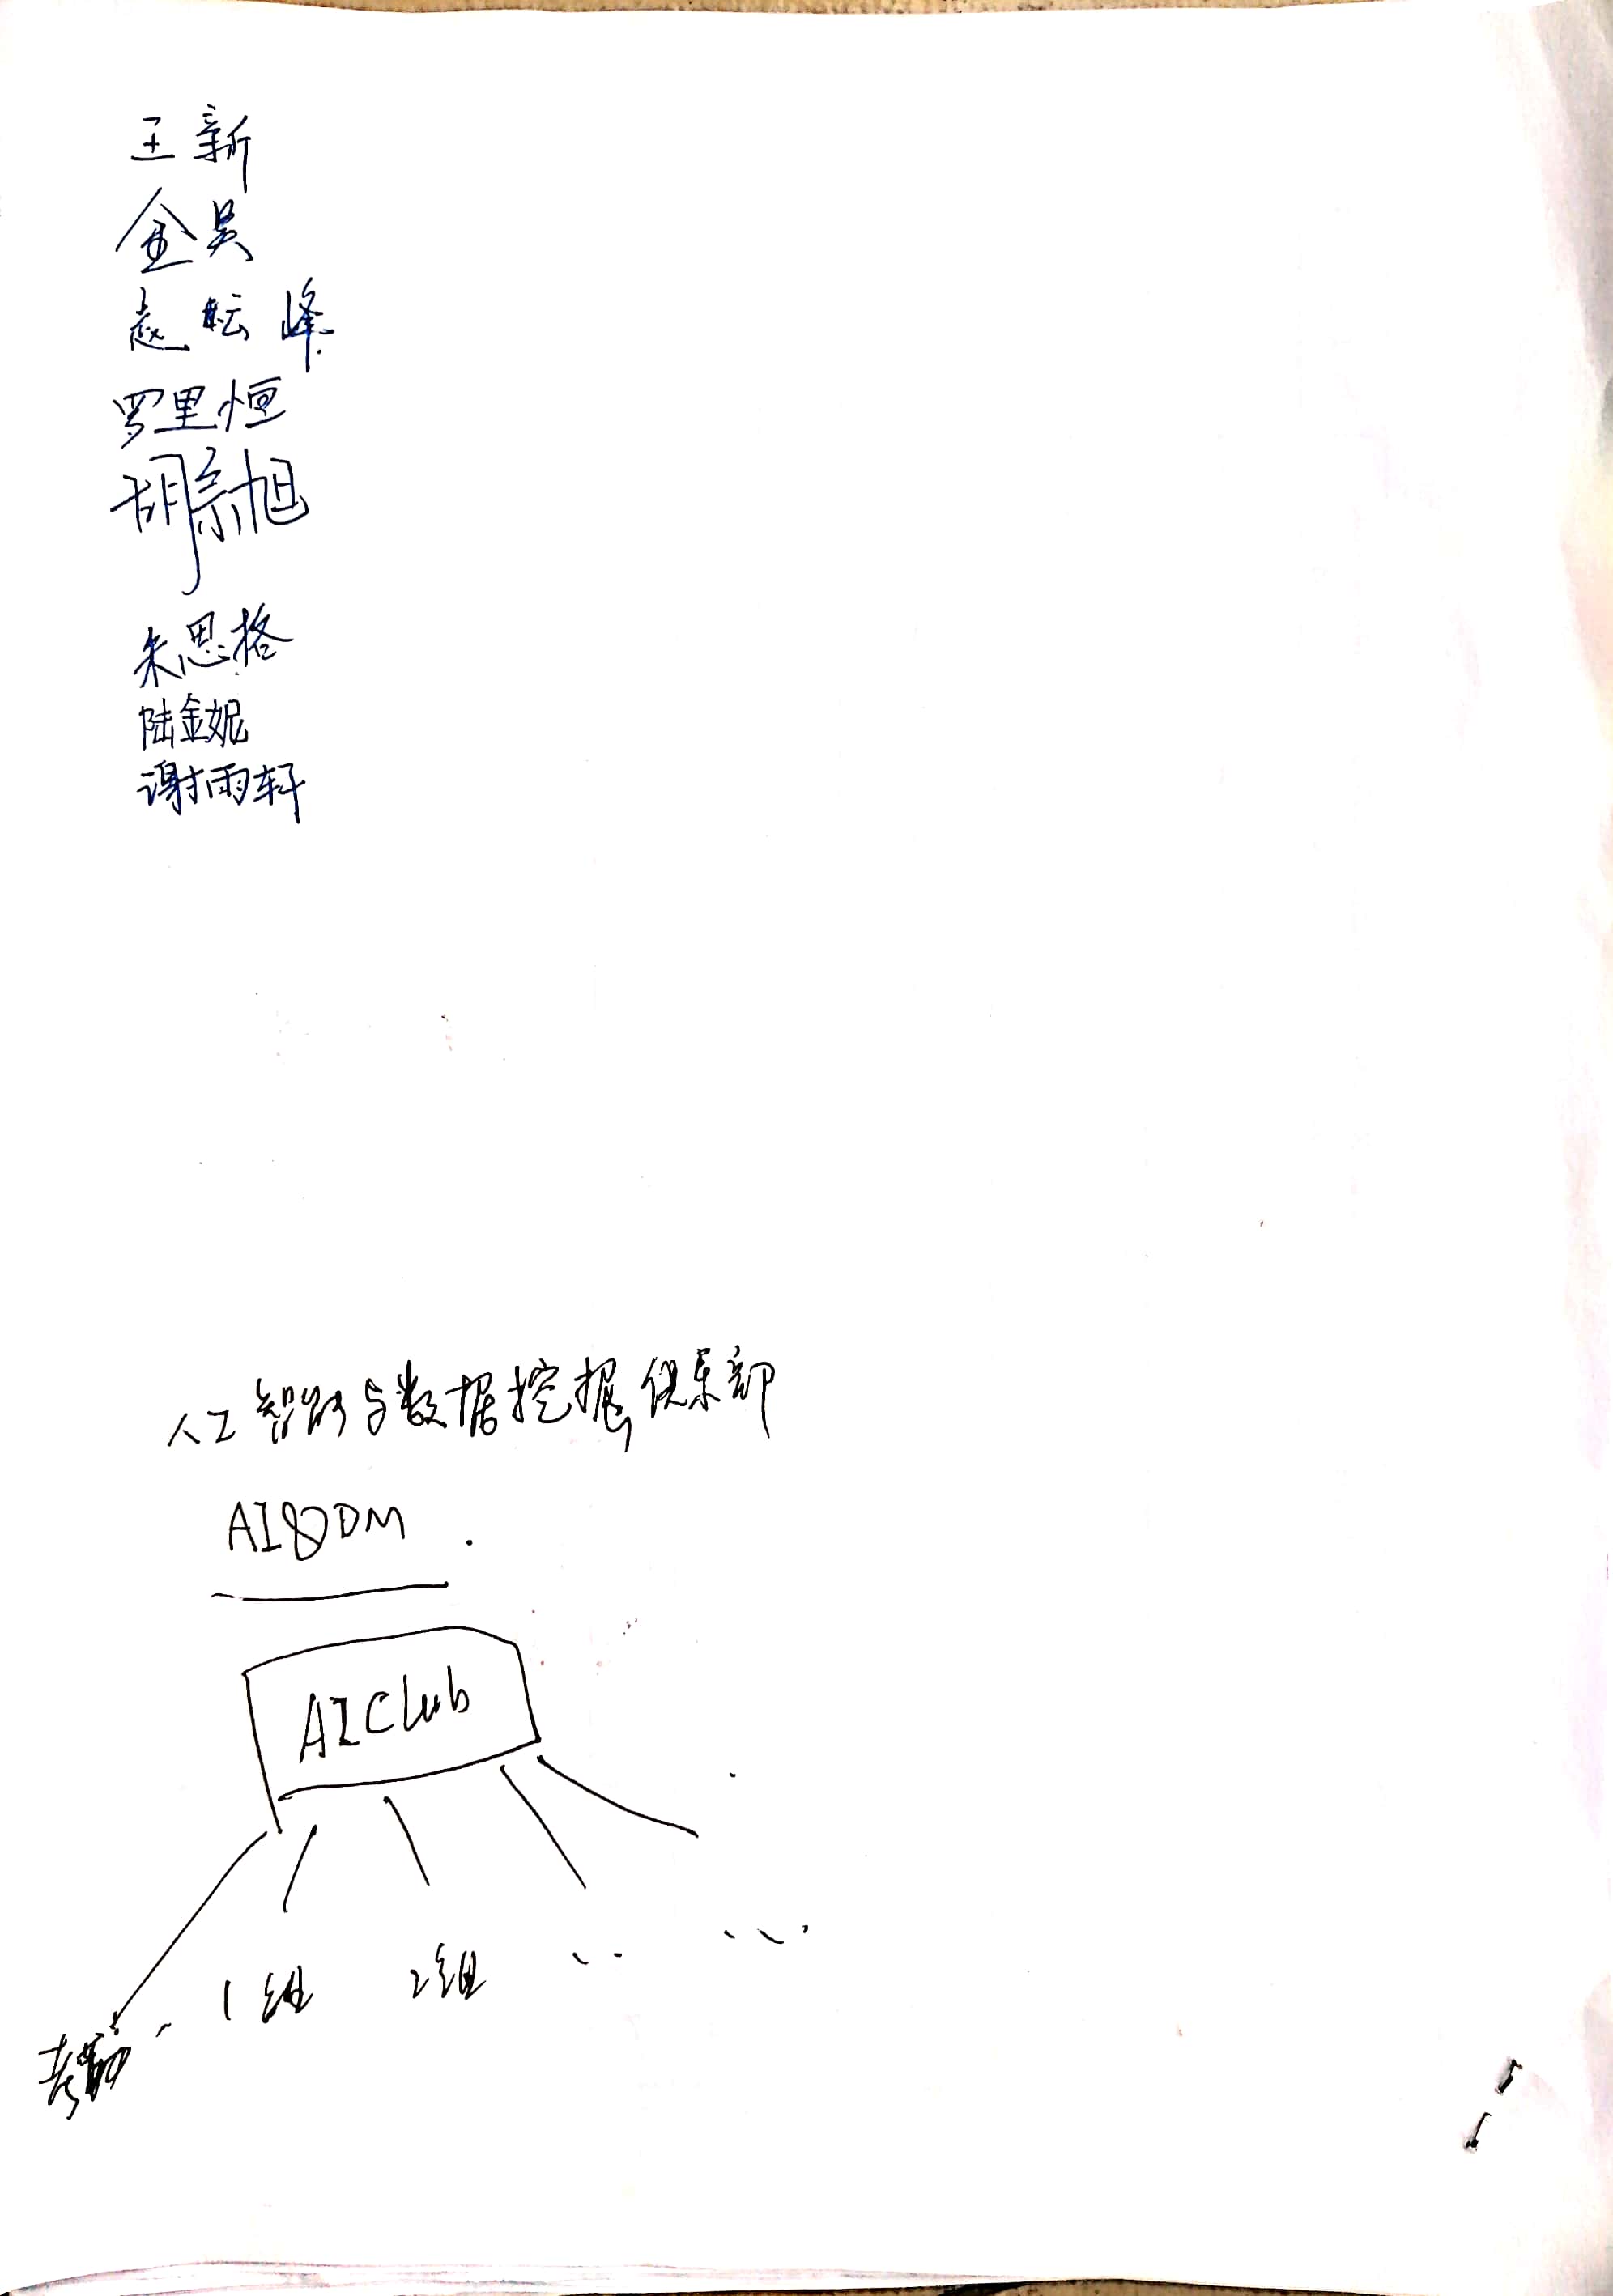 王新
金昊
赵耘峰
罗里恒
胡宗旭
朱思格
陆金妮
谢雨轩
人工智能与数据挖掘俱乐部
AI&DM.
AIClub
1组 2组 ‥ …
考勤